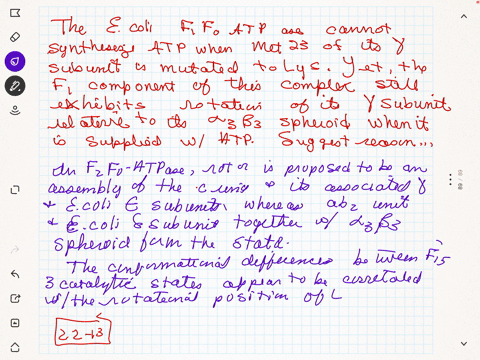 The E.coli F1F0 ATPase cannot
synthesize ATP when Met 23 of its γ
subunit is mutated to Lys. Yet, the
F1 component of this complex still
exhibits rotation of its γ subunit
relative to its α3β3 spheroid when it
is supplied w/ ATP. Suggest reason...
In F2F0-ATPase, rotor is proposed to be an
assembly of the c unit & its associated γ
& E.coli ε subunits, whereas ab2 unit
& E.coli δ subunit together w/ α3β3
spheroid form the
The conformational differences between F1's
3 catalytic states appear to be correlated
w/ the rotational position of
22-13